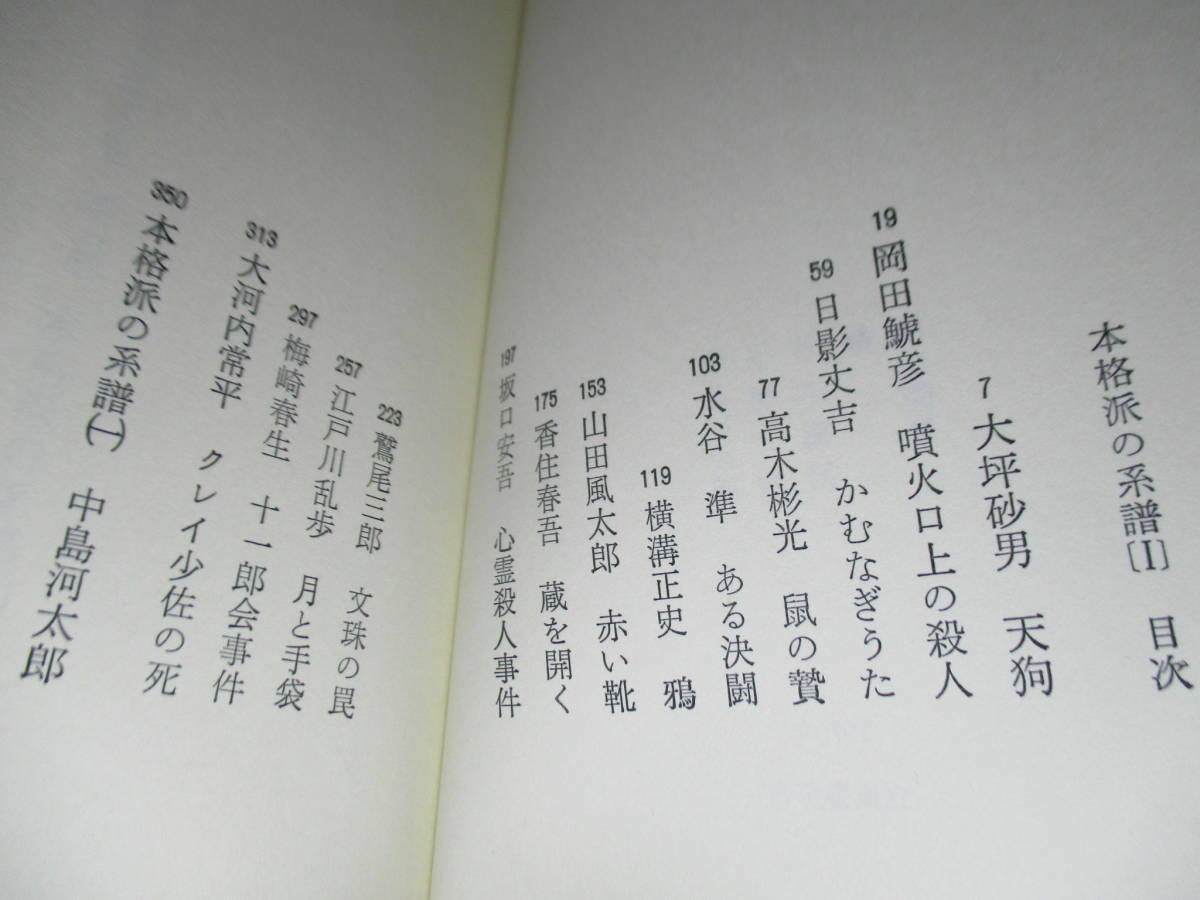 本格派の系譜〔I〕 目次
7 大坪砂男 天狗
19 岡田鯱彦 噴火口上の殺人
59 日影丈吉 かむなぎうた
77 高木彬光 鼠の贄
103 水谷 準 ある決闘
119 横溝正史 鴉
153 山田風太郎 赤い靴
175 香住春吾 蔵を開く
197 坂口安吾 心霊殺人事件
223 鷲尾三郎 文珠の罠
257 江戸川乱歩 月と手袋
297 梅崎春生 十一郎会事件
313 大河内常平 クレイ少佐の死
350 本格派の系譜(一) 中島河太郎